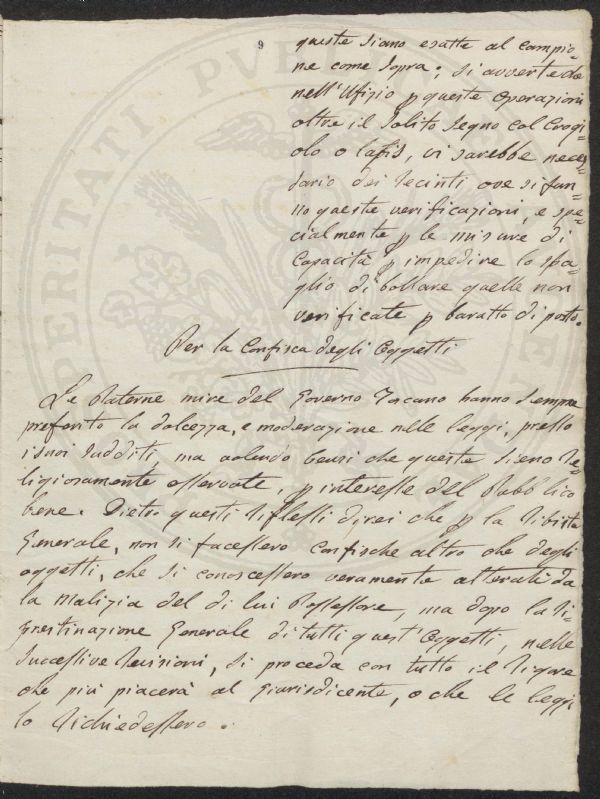 9
queste siano esatte al campio-
ne come sopra; si avverte che
nell'Ufizio p queste operazioni
oltre il solito segno col Crogi-
olo o lapis, vi sarebbe neces-
sario dei recinti ove si fan-
no queste verificazioni, e spe-
cialmente p le misure di
Capacità p impedire lo sba-
glio di bollare quelle non
verificate p baratto di posto.
Per la Confisca degli Oggetti
Le Paterne mire del Governo Toscano hanno sempre
preferito la dolcezza, e moderazione nelle leggi, presso
i suoi sudditi, ma volendo bensì che queste sieno re-
ligiosamente osservate, p interesse del Pubblico
bene. Dietro questi riflessi direi che p la Visita
Generale, non si facessero confische altro che degli
oggetti, che si conoscessero veramente alterati da
la Malizia del di lui Possessore, ma dopo la ri-
pristinazione Generale di tutti quest'Oggetti, nelle
successive revisioni, si proceda con tutto il rigore
che più piacerà al Giurisdicente, o che le leggi
lo richiedessero.